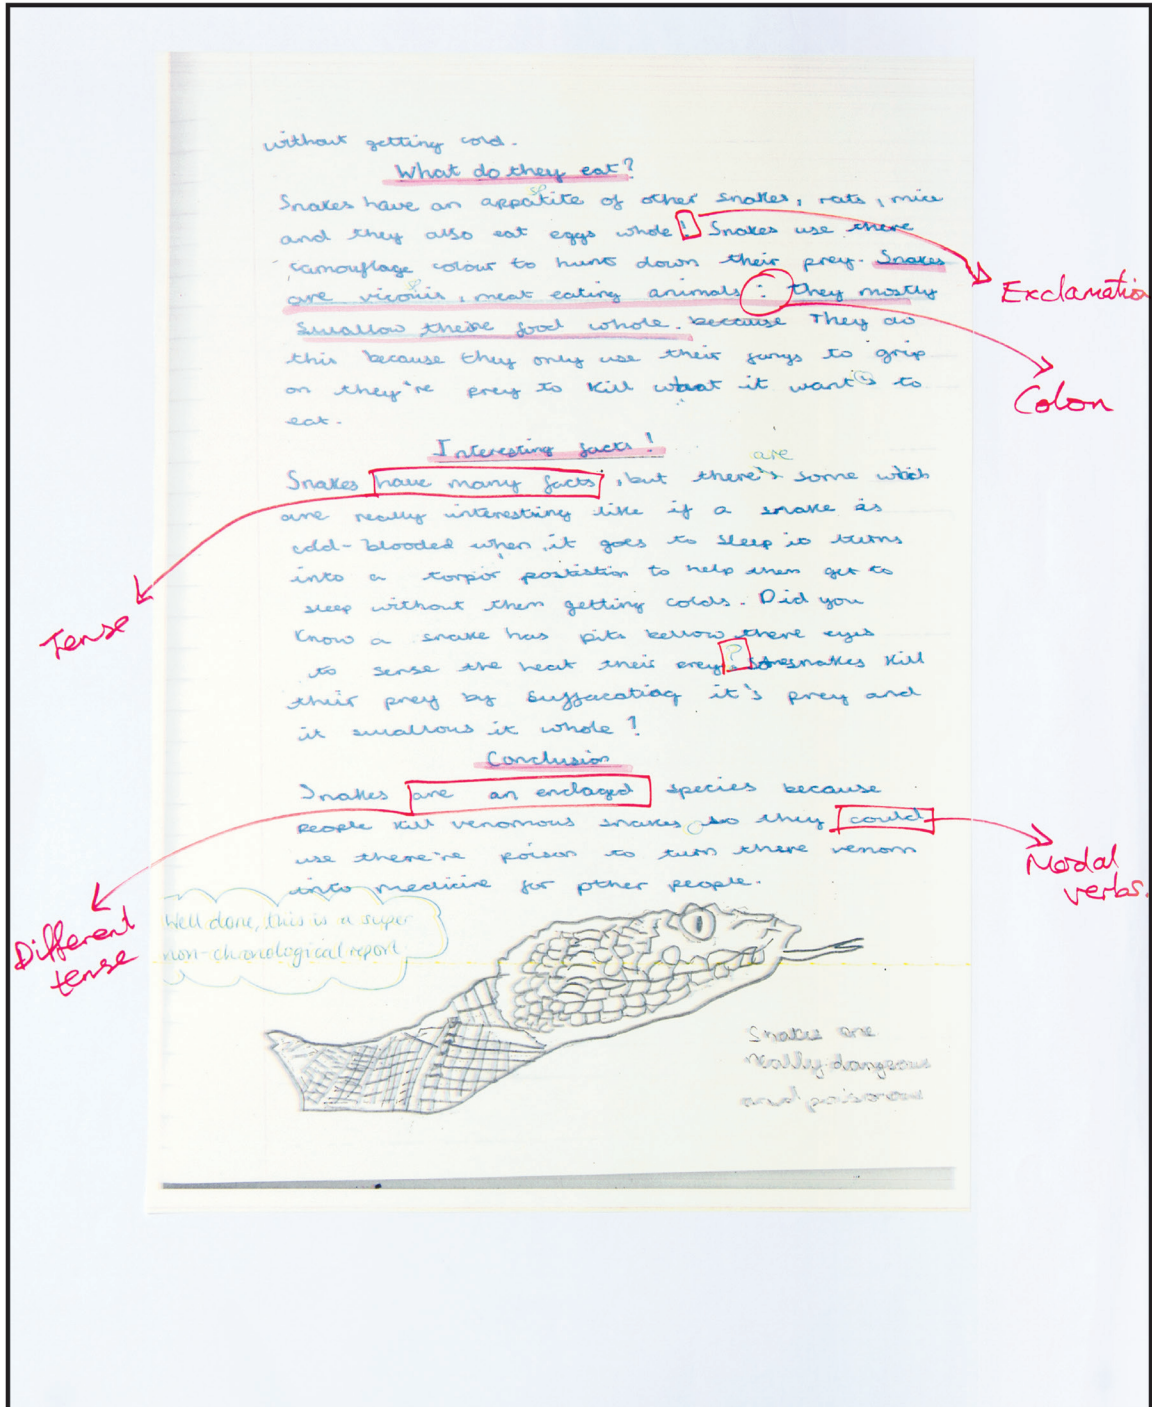 without getting cold.
What do they eat?
sp
Snakes have an appatite of other snakes, rats, mice
and they also eat eggs whole! Snakes use there
camouflage colour to hunt down their prey. Snakes
sp
are viconis, meat eating animals: they mostly
swallow there food whole. because They do
this because they only use their fangs to grip
on they're prey to kill what it wants to
eat.
Interesting facts!
are
Snakes have many facts, but there's some which
are really interesting like if a snake is
cold-blooded when it goes to sleep it turns
into a torpor postistion to help them get to
sleep without them getting colds. Did you
know a snake has pits bellow there eyes
to sense the heat their prey? snakes kill
their prey by suffacating it's prey and
it swallows it whole!
Conclusion
Snakes are an enclaged species because
people kill venomous snakes so they could
use there're poison to turn there venom
into medicine for other people.
Exclamation
Colon
Tense
Modal
verbs.
Different
tense
Well done, this is a super
non-chronological report
Snakes are
really dangerous
and poisonous